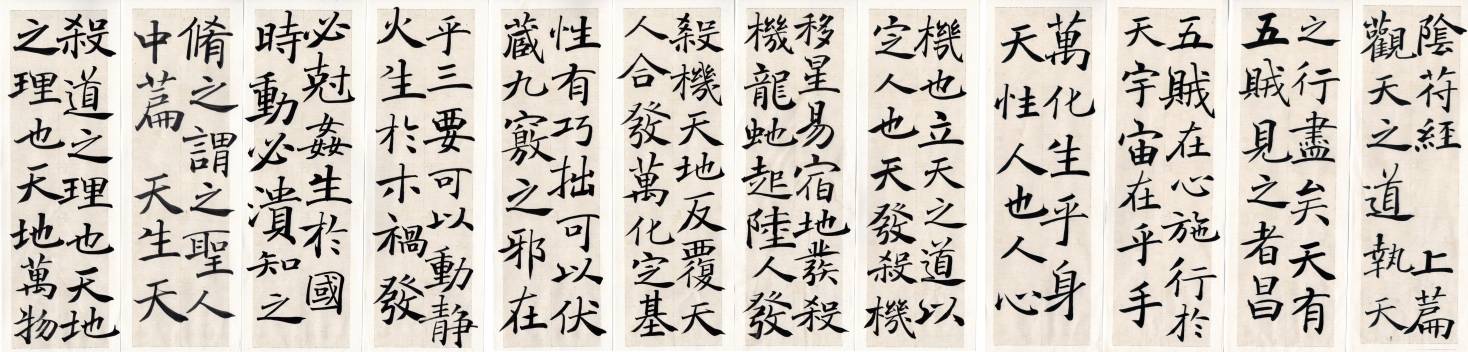 陰符經 上篇
觀天之道執天
之行盡矣天有
五賊見之者昌
五賊在心施行於
天宇宙在乎手
萬化生乎身
天性人也人心
機也立天之道以
定人也天發殺機
移星易宿地發殺
機龍虵起陸人發
殺機天地反覆天
人合發萬化定基
性有巧拙可以伏
藏九竅之邪在
乎三要可以動靜
火生於木禍發
必尅姦生於國
時動必潰知之
脩之謂之聖人
中篇 天生天
殺道之理也天地
之理也天地萬物